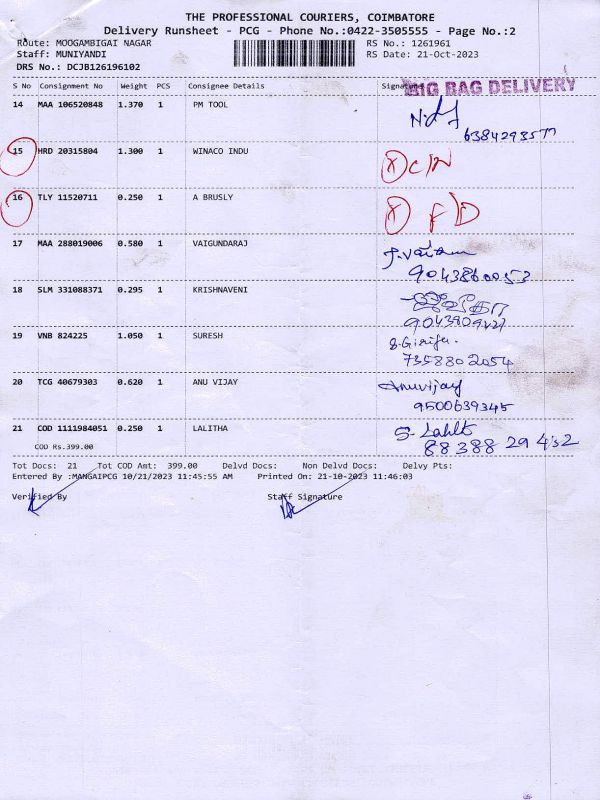 THE PROFESSIONAL COURIERS, COIMBATORE
Delivery Runsheet - PCG - Phone No.:0422-3505555 - Page No.:2
Route: MOOGAMBIGAI NAGAR RS No.: 1261961
Staff: MUNIYANDI RS Date: 21-Oct-2023
DRS No.: DCJB126196102
BIG BAG DELIVERY
S No Consignment No Weight PCS Consignee Details Signature
14 MAA 106520848 1.370 1 PM TOOL
15 HRD 20315804 1.300 1 WINACO INDU
16 TLY 11520711 0.250 1 A BRUSLY
17 MAA 288019006 0.580 1 VAIGUNDARAJ
9043860053
18 SLM 331088371 0.295 1 KRISHNAVENI
19 VNB 824225 1.050 1 SURESH
7358802054
20 TCG 40679303 0.620 1 ANU VIJAY Anuvijay
9500639345
21 COD 1111984051 0.250 1 LALITHA
COD Rs.399.00
Tot Docs: 21 Tot COD Amt: 399.00 Delvd Docs: Non Delvd Docs: Delvy Pts:
Entered By :MANGAIPCG 10/21/2023 11:45:55 AM Printed On: 21-10-2023 11:46:03
Verified By Staff Signature